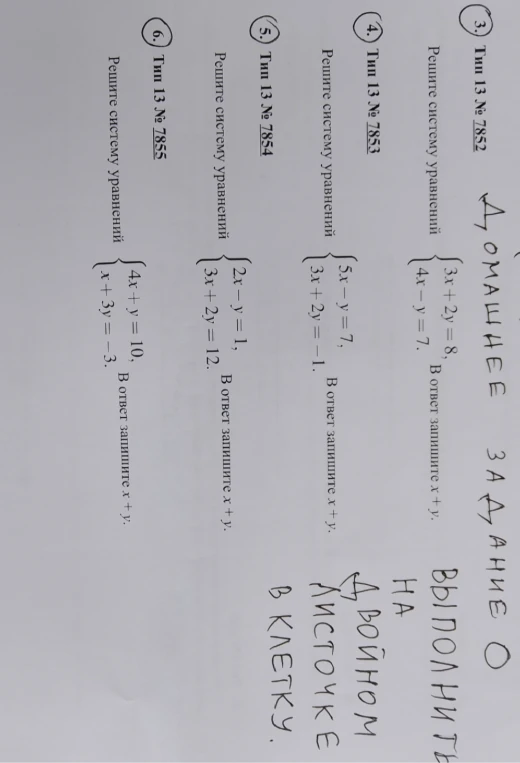 ДОМАШНЕЕ ЗАДАНИЕ
3. Тип 13 № 7852
Решите систему уравнений { 3x + 2y = 8, 4x − y = 7. В ответ запишите x + y.
4. Тип 13 № 7853
Решите систему уравнений { 5x − y = 7, 3x + 2y = −1. В ответ запишите x + y.
5. Тип 13 № 7854
Решите систему уравнений { 2x − y = 1, 3x + 2y = 12. В ответ запишите x + y.
6. Тип 13 № 7855
Решите систему уравнений { 4x + y = 10, x + 3y = −3. В ответ запишите x + y.
ВЫПОЛНИТЬ
НА
ДВОЙНОМ
ЛИСТОЧКЕ
В КЛЕТКУ.